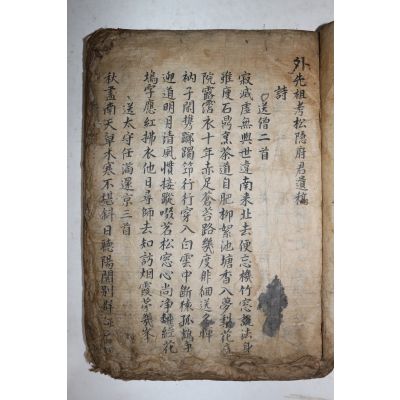 外先祖考松隐府君遺稿
詩
送僧二首
寂滅虛無與世違南來北去便忘機竹窓說法身
雖度石鼎烹茶道自肥柳絮池塘香入夢梨花
院露霑衣十年赤足蒼苔路幾度
衲子閑携躑躅笻行行穿入白雲中斷猿孤鶴
迎道明月淸風慣接蹤啜茗松窓心尚淨經花
塢字應紅掃衣他日尋師去知訪烟霞第幾峯
送太守任滿還京三首
秋盡南天草木寒不堪斜日聽陽關別